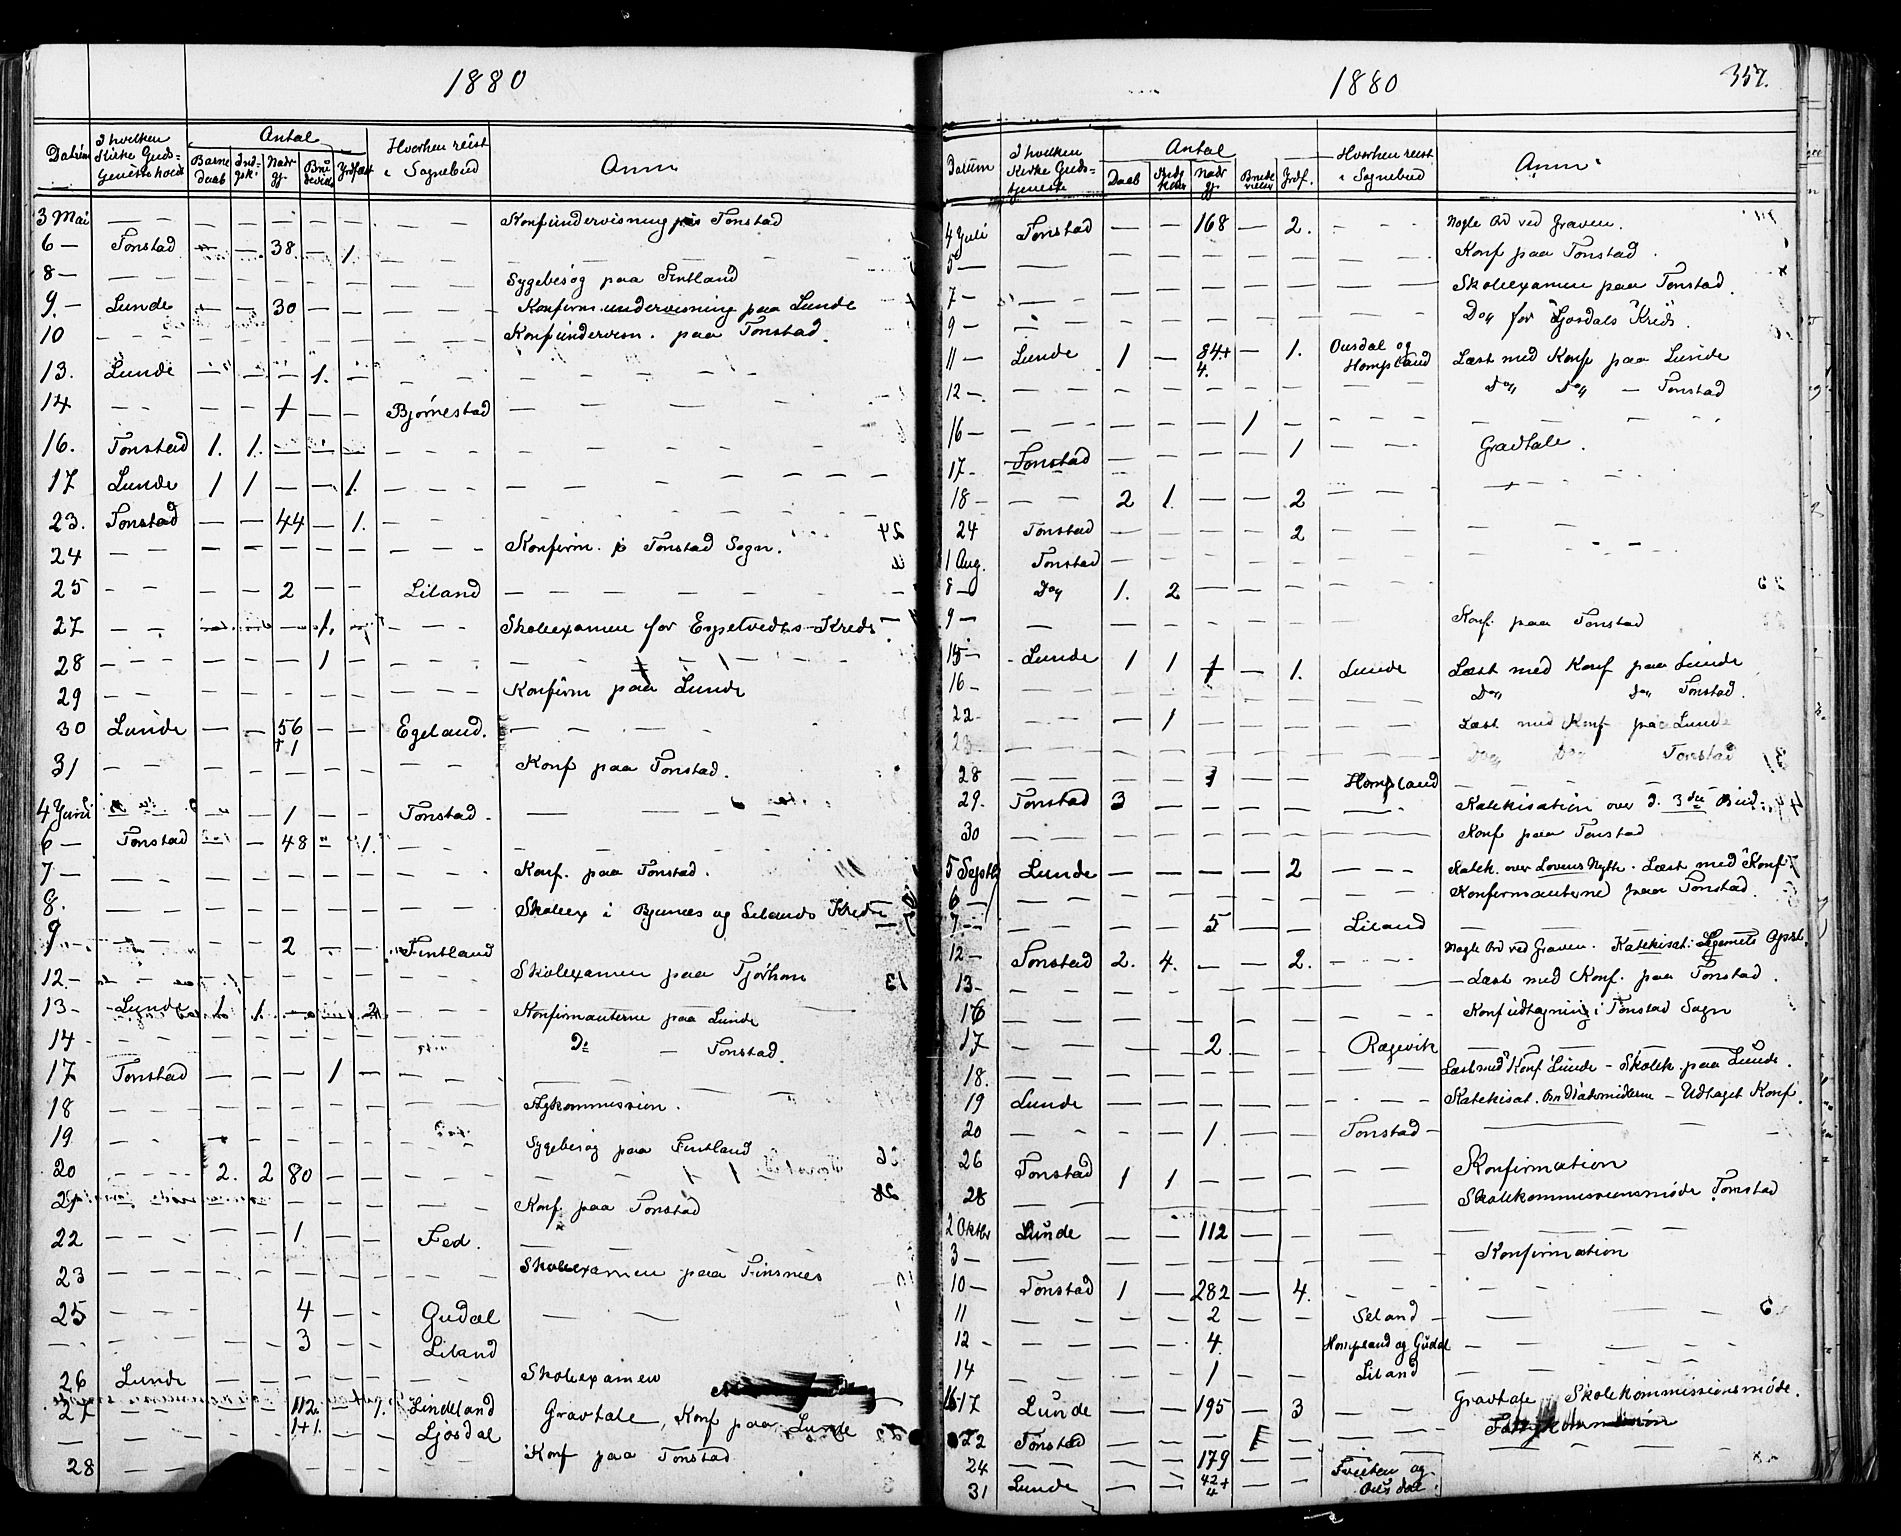 1880
Datum I hvilken Kirke Guds- tjeneste holdt Antal Barne daab Ind- gsk. Nadv gj. Bru devids Jrdfæst Hvorhen reist i Sognebud Anm
3 Mai — — — — Konfundervisning paa Tonstad
6 — Tonstad — — 38 — 1.
8 — — — Sygebesøg paa Fintland
9. — Lunde — — 30 — — Konfirm.undervisning paa Lunde
10 — — Konfundervisn. paa Tonstad.
13. Lunde — — — 1. —
14 — — — — 1 — — Bjørnestad —
16. Tonstad 1. 1. — — —
17 Lunde 1 1 — — 1.
23. Tonstad — — 44 — 1.
24 — — Konfirm. i Tonstad Sogn.
25 — — — — 2 — — Liland
27 — — — 1. — Skoleexamen for Espetvedts Kreds
28 — — — — 1 —
29 — — Konfirm paa Lunde
30 Lunde — — 56 + 1 — — Egeland.
31 — — Konf paa Tonstad.
4 Juni — — 1 — — Tonstad.
6 — Tonstad — — 48 " 1.
7 — — — Konf. paa Tonstad.
8. — — Skoleex i Bjunes og Silands Kredse
9 — — — 2 — — Fintland
12 — — — Skolexamen paa Tjorhom
13 — Lunde 1 1. — — 2 Konfirmanterne paa Lunde
14 — — Do — Tonstad.
17 Tonstad — — — 1 —
18 — — kommission.
19 — — Sygebesøg paa Fintland
20 — — 2. 2 80 — —
21 — — Konf. paa Tonstad
22 — — — — 1 — — Fed.
23 — — Skolexamen paa Finsnes
25 — — — — 4 — — Gudal
— — — — 3 Liland
26 Lunde — — Skolexamen
27 — — — 112. 1+1. — 1. Lindeland Ljosdal Gravtale, Konf paa Lunde
28 — — Konf paa Tonstad
1880 357.
Datum I hvilken Kirke Guds- tjeneste Antal Daab Nadv gj. Brude vielser Jrdf. Hvorhen reist i Sognebud Anm
4 Juli Tonstad — — 168 — 2. — Nogle Ord ved Graven.
5 — — Konf paa Tonstad.
7 — — Skolexamen paa Tonstad.
9 — — Do for "Ljosdals" Kreds.
11 — Lunde 1 — 84+ 4. — 1. Ousdal og Hompland Læst med Konf paa Lunde
12 — — Do Do — Tonstad
16 — — — — — 1
17 — Tonstad — — — — 1 Gravtale.
18 — — — 2 1. — — 2
24 Tonstad — — — — 2
1 Aug. Tonstad —
8 — Do 1. 2 —
9 — — Konf. paa Tonstad
15 — Lunde 1 1 1 — 1. Lunde Læst med Konf paa Lunde
16 — — Do Do Tonstad.
22 — — — 1 — Læst med Konf paa Lunde
23 — — Do Do Tonstad
28 — — — 1 — — Hompland
29. Tonstad 3 — — Katekisation over d. 3die Bud.
30 — — Konf paa Tonstad
5 Septb Lunde — — — — 2 Katek. over Lovens Nytte. Læst med Konf
6 — — Konfirmanterne paa Tonstad.
7 — — — — 5 — — Liland —
12 — Tonstad 2. 4. — — 2. Nogle Ord ved Graven. Katekisat: Legemets Opst.
13 — — Læst med Konf. paa Tonstad.
16 — — Konfudtagning i Tonstad Sogn
17 — — — 2 — — Rægevik
18. — — Læst med Konf Lunde — Skolek. paa Lunde.
19 Lunde Katekisat. om Naademidlerne — Udtaget Konf.
20 — — — 1. — — Tonstad —
26 Tonstad 1 1 — Konfirmation
28 — — Skolekommissionsmøde Tonstad
2 Oktbr Lunde — — 112 — —
3 — — Konfirmation
10 — Tonstad 1 — 282 — 4.
11 — — 2 — — Seland —
12 — — — 4. — — Hompland og Gudal
14 — — — 1 — — Liland —
16 17 Lunde — — 195 — 3 — Gravtale Skolekommissionsmøde.
22 Tonstad — —
24 — — — 179 — —
31 Lunde — — 42+ 4 — — Tveiten og Ousdal.